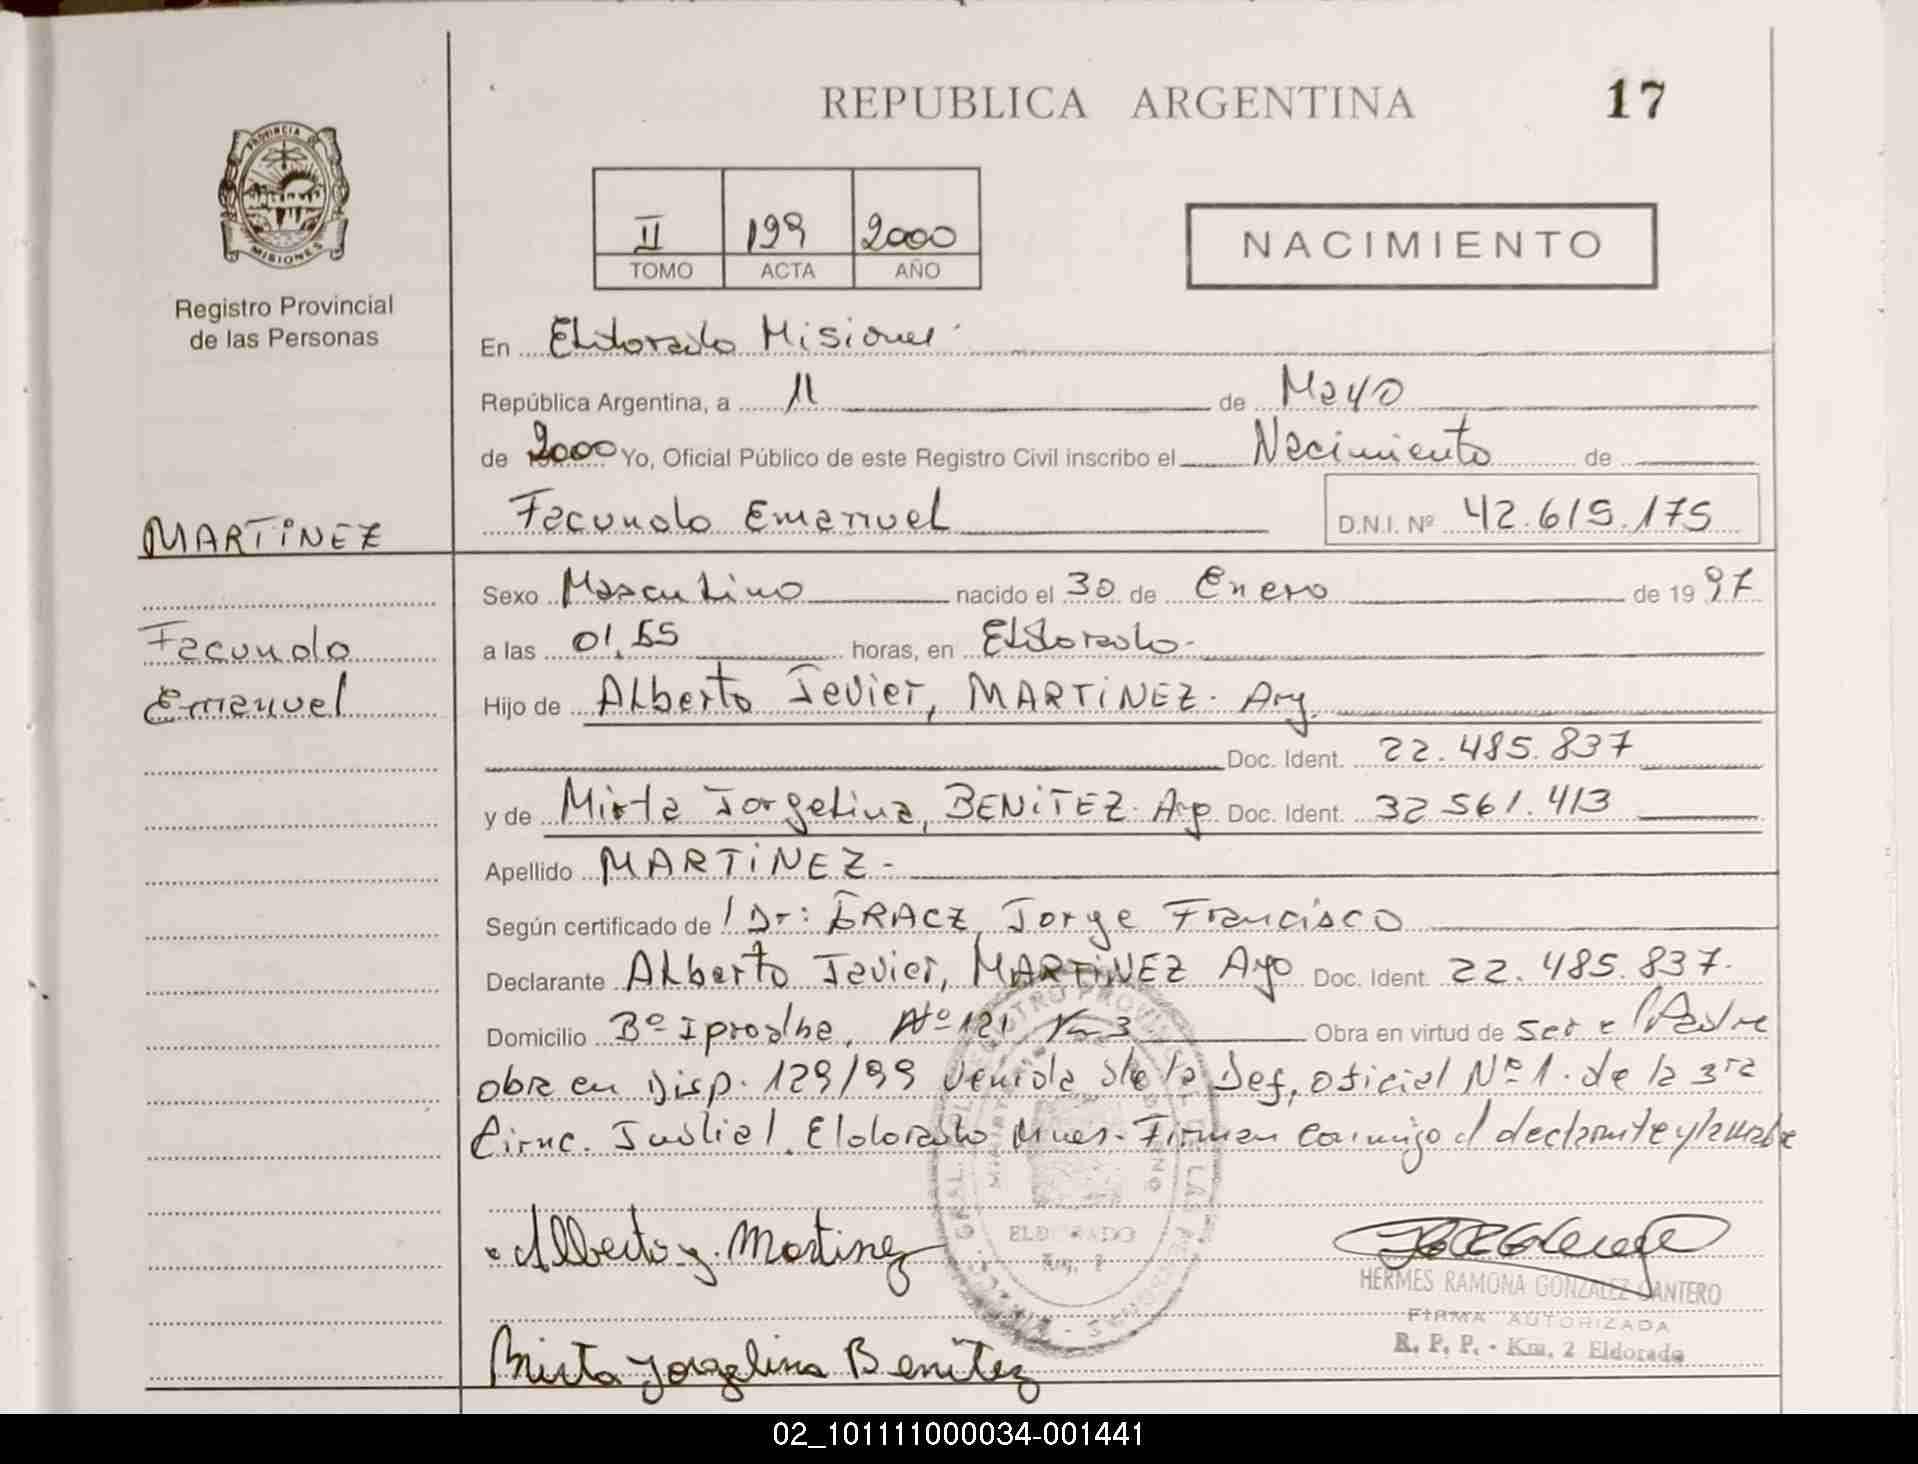 REPUBLICA ARGENTINA
17
PROVINCIA DE
MISIONES
Registro Provincial
de las Personas
II 199 2000
TOMO ACTA AÑO
NACIMIENTO
En Eldorado Misiones
República Argentina, a 11 de Mayo
de 2000 Yo, Oficial Público de este Registro Civil inscribo el Nacimiento de
Facundo Emanuel D.N.I. Nº 42.619.175
MARTINEZ
Facundo
Emanuel
Sexo Masculino nacido el 30 de Enero de 1997
a las 01,55 horas, en Eldorado-
Hijo de Alberto Javier, MARTINEZ. Arg.
Doc. Ident. 22.485.837
y de Mirta Jorgelina, BENITEZ. Arg Doc. Ident. 32561.413
Apellido MARTINEZ-
Según certificado de Dr: Jorge Francisco
Declarante Alberto Javier, MARTINEZ Arg Doc. Ident. 22.485.837.
Domicilio Bº Iprodha, Nº 121 Km 3 Obra en virtud de ser el Padre
obra en Disp. 129/99 venida de la Def, oficial Nº 1. de la 3ra
Circ. Judicial, Eldorado Mnes. Firman conmigo el declarante y la madre
Alberto J. Martinez
Mirta Jorgelina Benitez
ELDORADO
HERMES RAMONA GONZALEZ CANTERO
FIRMA AUTORIZADA
R. P. P. - Km. 2 Eldorado
02_101111000034-001441